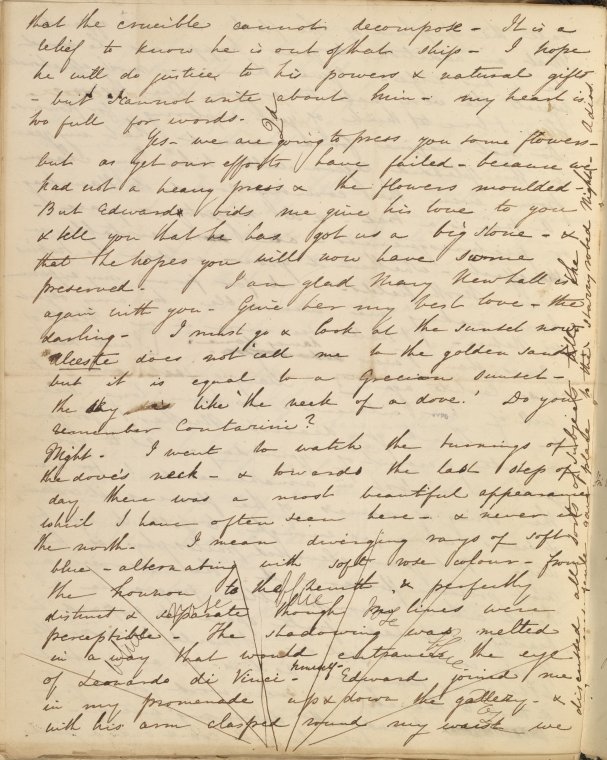 that the crucible cannot decompose - It is a
relief to know he is out of that ship - I hope
he will do justice to his powers & natural gifts
- but I cannot write about him - my heart is
too full for words -
Yes - we are going to press you some flowers -
but as yet our efforts have failed - because we
had not a heavy press & the flowers moulded
But Edward bids me give his love to you
& tell you that he has got us a big stone - &
that he hopes you will now have some
preserved - I am glad Mary Newhall is
again with you - Give her my best love - the
darling - I must go & look at the sunset now
Alceste does not call me to the golden sand
but it is equal to a Grecian sunset -
the sky is like "the neck of a dove." Do you
remember Contarini?
Night - I went to watch the burnings of
the dove's neck - & towards the last step of
day there was a most beautiful appearance
which I have often seen here - & never in
the north - I mean diverging rays of soft
blue - alternating with soft rose colour - from
the horizon to the zenith & perfectly
distinct & separate though no lines were
perceptible - The shadowing was melted
in a way that would entrance the eye
of Leonardo di Vinci himself - Edward joined me
in my promenade up & down the gallery - &
with his arm clasped round my waist we
discussed all sorts of subjects till the
gave place to the starry robed Night - Adios
blue
rose